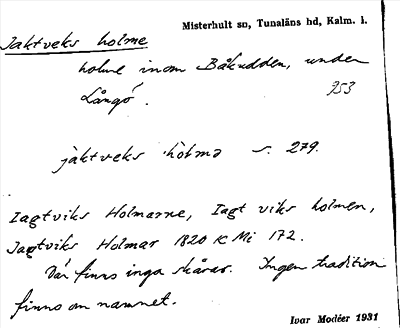 Misterhult sn, Tunaläns hd, Kalm. l.
Jaktveks holme
holme inom Båkudden, under
Långö. 953
jàktveks ·hòlmə s. 279.
Iagtviks Holmarne, Iagt viks holmen,
Jagtviks Holmar 1820 K Mi 172.
Där finns inga skårar. Ingen tradition
finns om namnet.
Ivar Modéer 1931